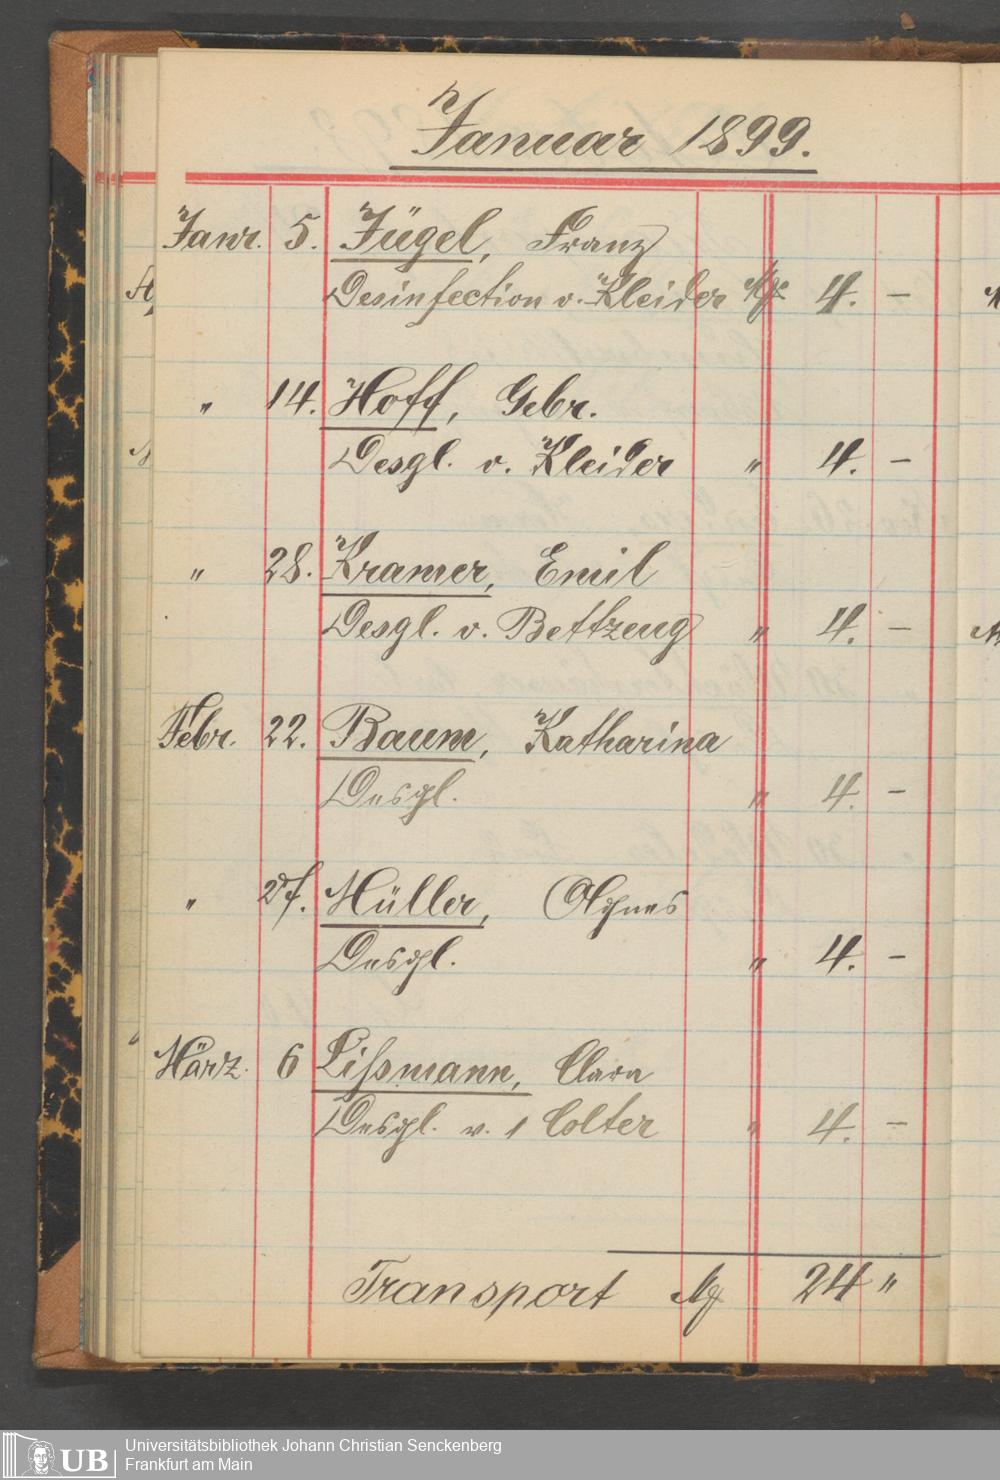 Januar 1899.
Janr. 5. Jügel, Franz
Desinfection v. Kleider Mk 4. —
" 14. Hoff, Gebr.
Desgl. v. Kleider " 4. —
" 28. Kramer, Emil
Desgl. v. Bettzeug " 4. —
Febr. 22. Baum, Katharina
Desgl. " 4. —
" 27. Müller, Agnes
Desgl. " 4. —
März. 6 Lißmann, Clara
Desgl. v. 1 Colter " 4. —
Transport Mk 24 "
UB
Universitätsbibliothek Johann Christian Senckenberg
Frankfurt am Main